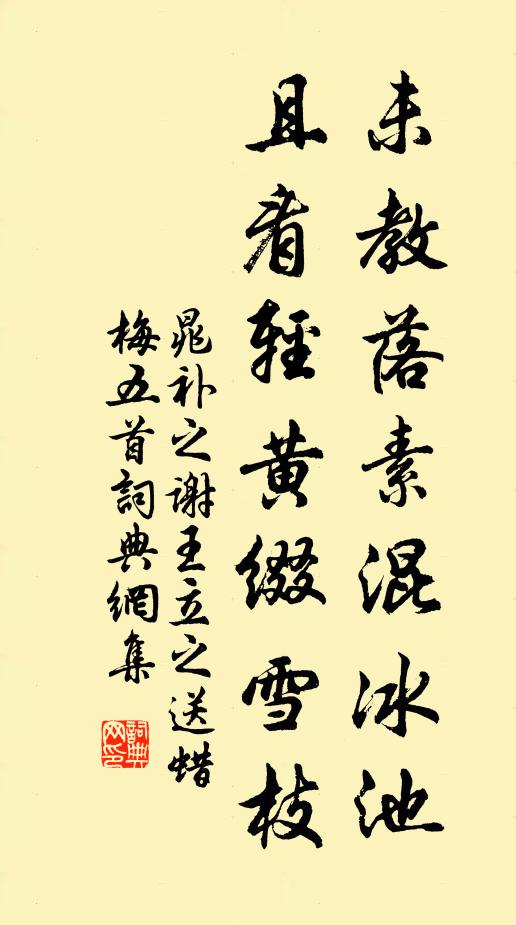 未教落素混冰池
且看輕黄綴雪枝
晁补之谢王立之送蜡
梅五首詞典網集
詞典網印